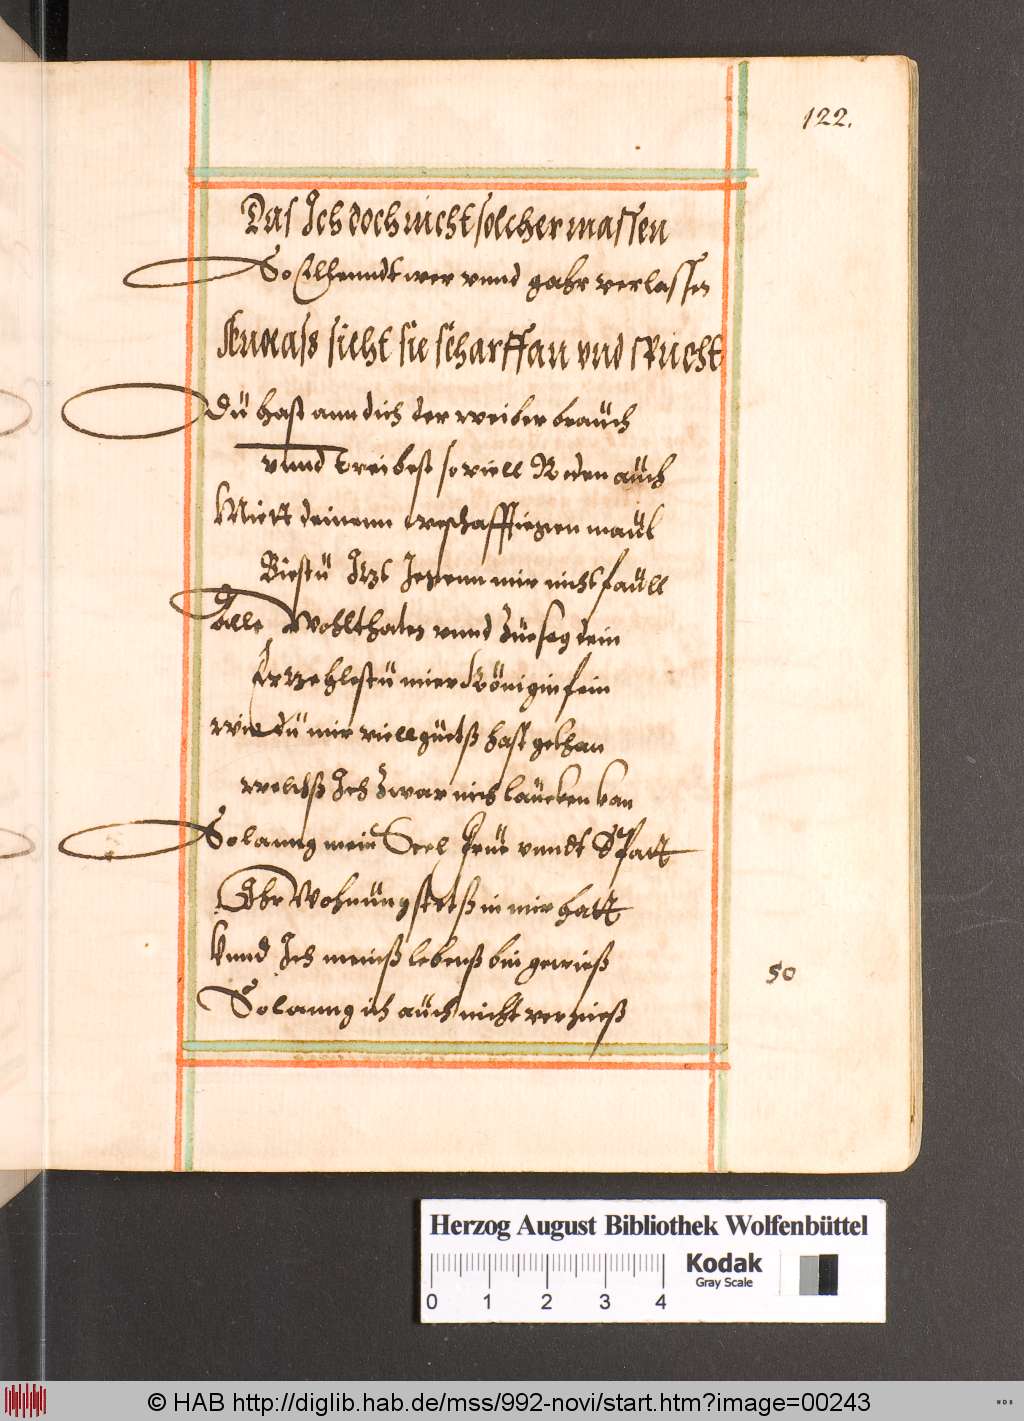 122.
Das Ich doch nicht solcher massen
So Ellenndt wer vnnd gahr verlassen
Aeneass sicht sie scharff an vnd spricht
Dü hast ann dich der weiber brauch
vnnd treibest so viell Reden auch
Miett deinenn maül
Biestü Itzt mir nicht faüll
Alle Wohlthaten vnnd Züsag dein
Ertzehlestü mier Königin fein
wie dü mir viell güetß hast gethan
welchß Ich zwar nit laücken kan
So lanng mein Seel vnndt
Ihr Wohnüng stetß in mir hatt
Vnnd Ich meinß lebenß bin gewieß
So lanng ich aüch nicht vergieß
50
Herzog August Bibliothek Wolfenbüttel
Kodak
Gray Scale
0 1 2 3 4
© HAB http://diglib.hab.de/mss/992-novi/start.htm?image=00243